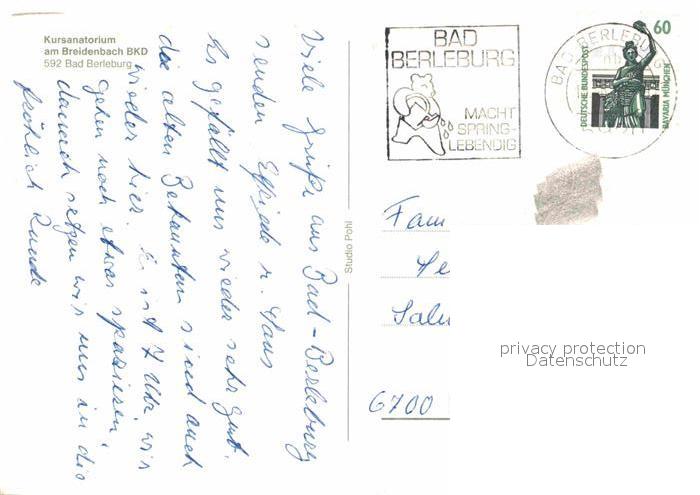 Kursanatorium
am Breidenbach BKD
592 Bad Berleburg
Viele Grüße aus Bad-Berleburg
senden Elfriede u. Hans
Es gefällt uns wieder sehr gut.
die alten Bekannten sind auch
wieder hier. Es ist 7 Uhr, wir
gehen noch etwas spazieren,
danach setzen wir uns in die
fröhlich Runde
Studio Pohl
BAD
BERLEBURG
MACHT
SPRING-
LEBENDIG
BAD BERLEBURG
60
DEUTSCHE BUNDESPOST
BAVARIA MÜNCHEN
Fam
He
Salu
6700
privacy protection
Datenschutz